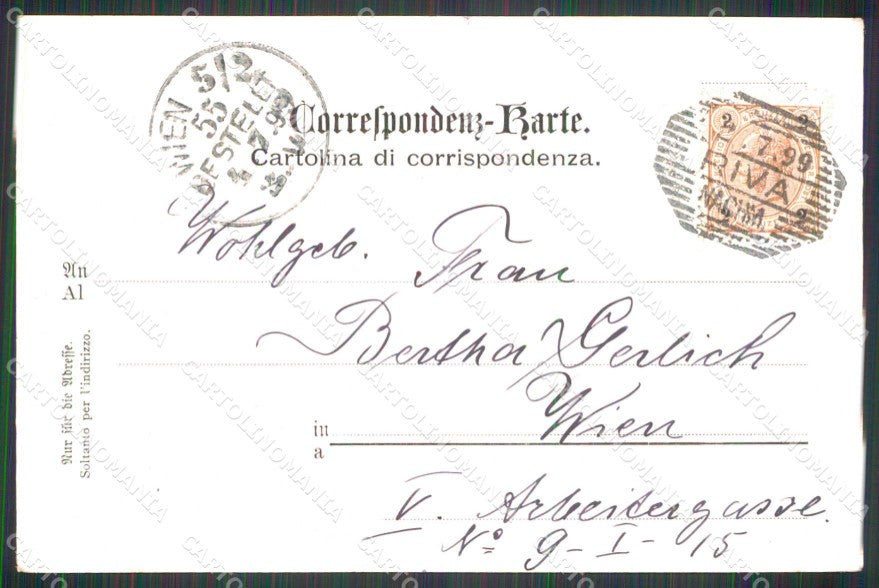 WIEN 5/2
55
BESTELLT
4. 7. 99
Correspondenz-Karte.
Cartolina di corrispondenza.
2 2
7.99
RIVA
NACHM
2
Wohlgeb. Frau
An
Al
Bertha Gerlich
in Wien
a
V. Arbeitergasse.
Nº 9-I-15
Nur für die Adresse.
Soltanto per l'indirizzo.
CARTOLINOMANIA